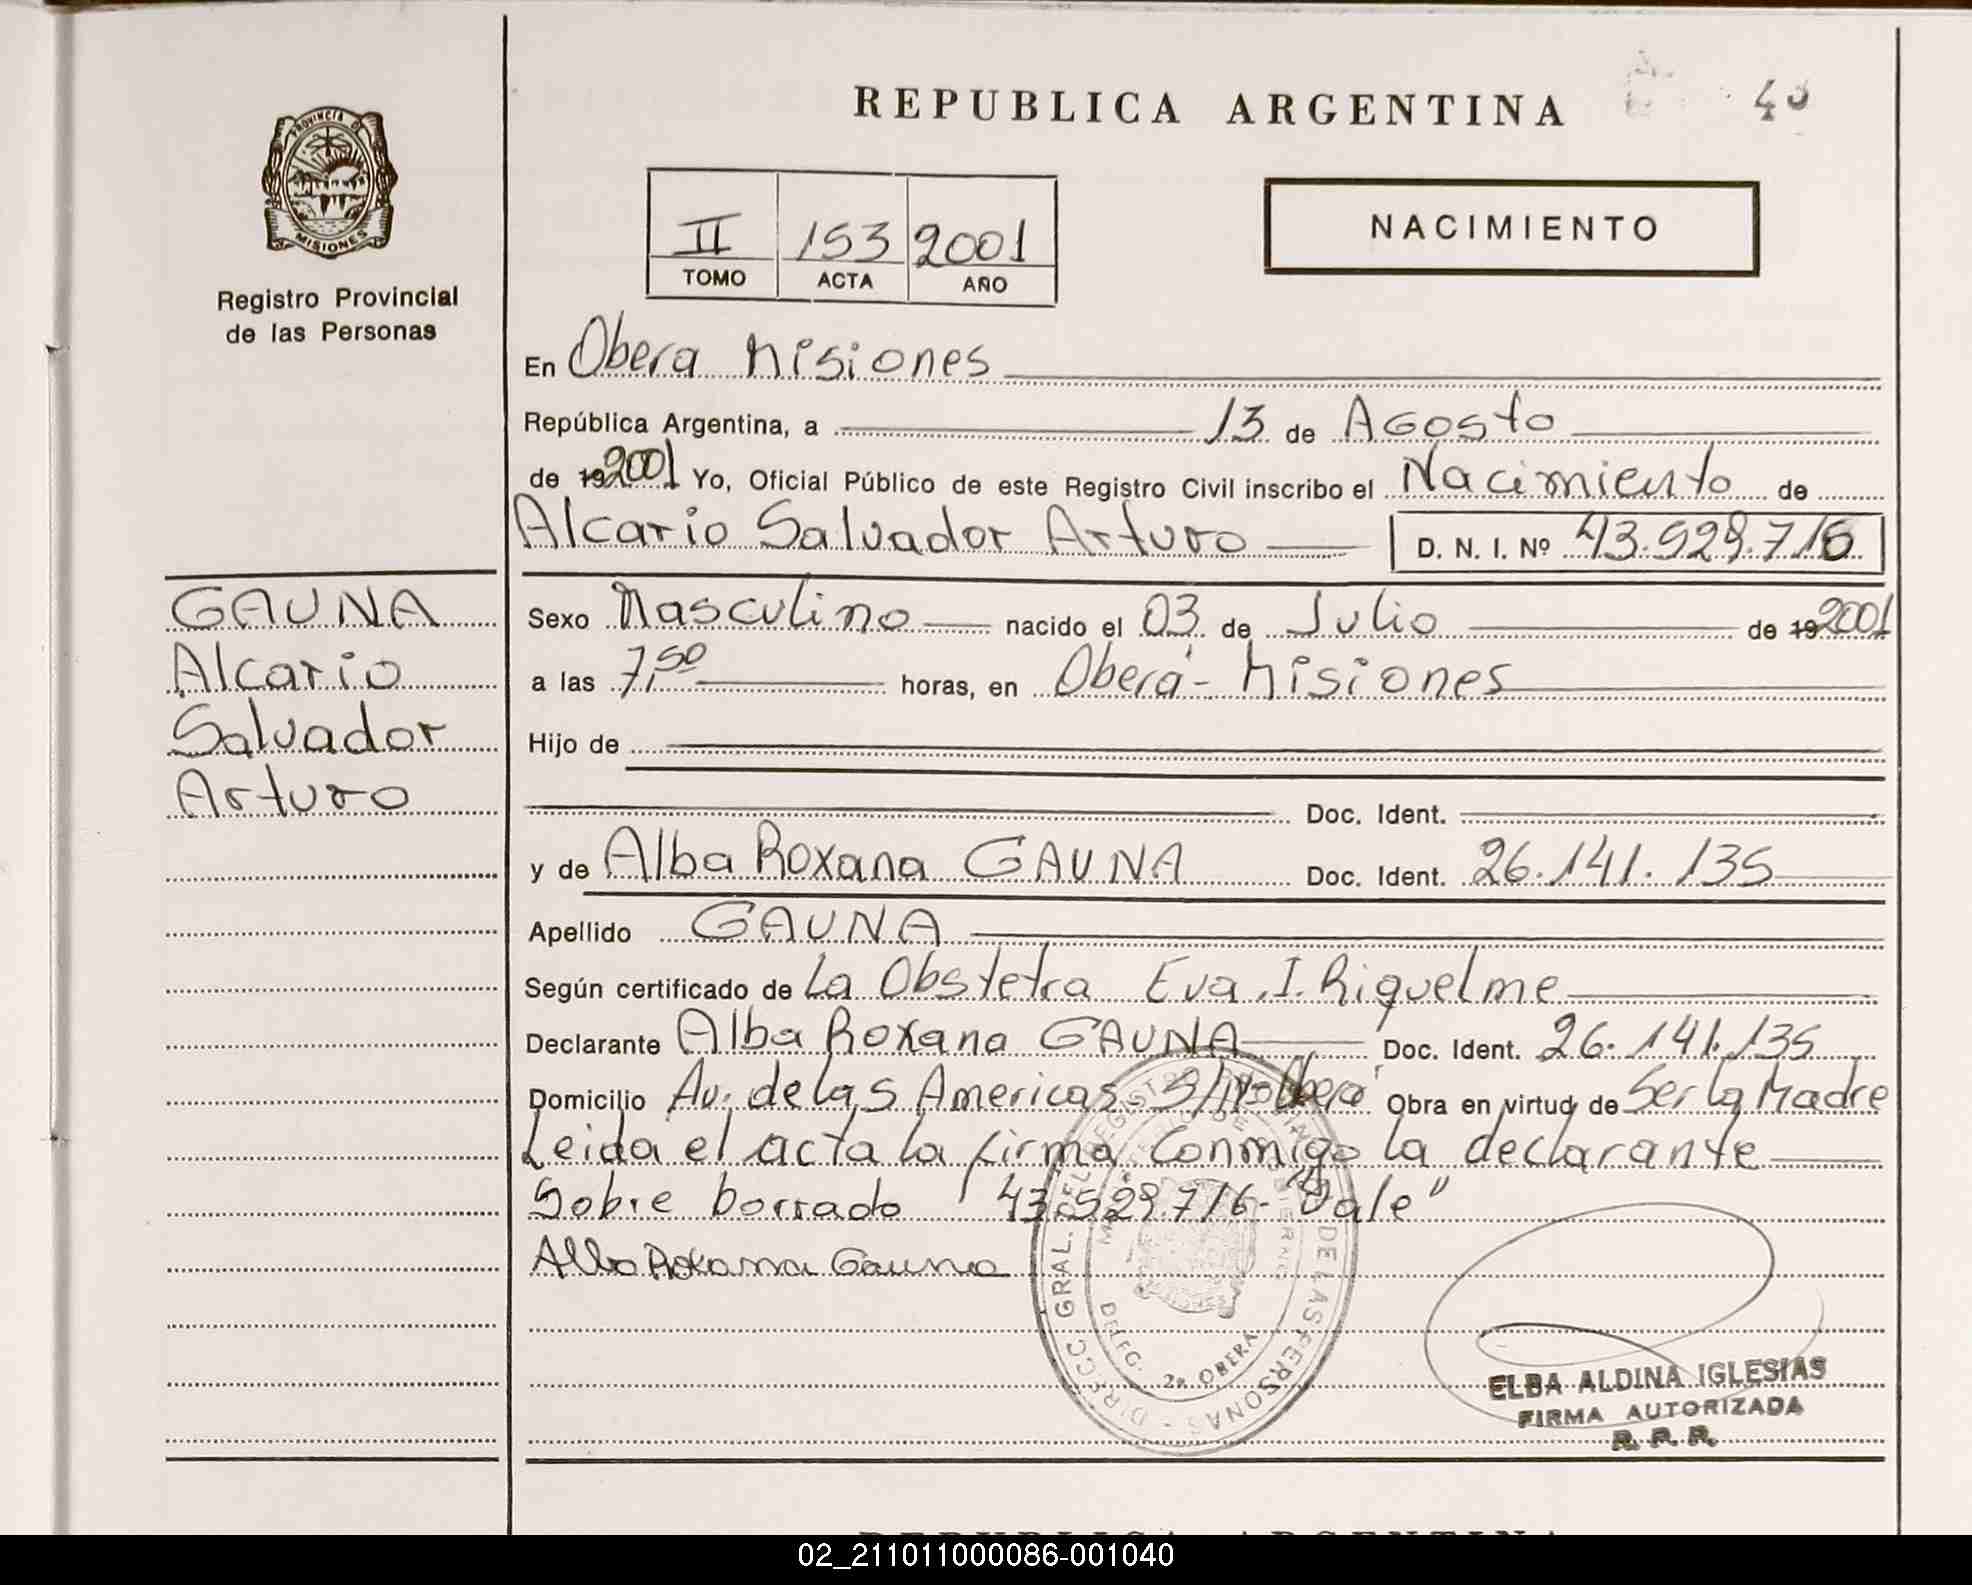 REPUBLICA ARGENTINA
40
PROVINCIA DE
MISIONES
Registro Provincial
de las Personas
II 153 2001
TOMO ACTA AÑO
NACIMIENTO
En Obera Misiones
República Argentina, a 13 de Agosto
de 19 2001 Yo, Oficial Público de este Registro Civil inscribo el Nacimiento de
Alcario Salvador Arturo D. N. I. Nº 43.529.716
GAUNA
Alcario
Salvador
Arturo
Sexo Masculino nacido el 03 de Julio de 19 2001
a las 7,50 horas, en Oberá - Misiones
Hijo de
Doc. Ident.
y de Alba Roxana GAUNA Doc. Ident. 26.141.135
Apellido GAUNA
Según certificado de La Obstetra Eva I. Riquelme
Declarante Alba Roxana GAUNA Doc. Ident. 26.141.135
Domicilio Av. de las Americas S/Nº Oberá Obra en virtud de Ser la Madre
Leida el acta la firma Conmigo la declarante
Sobre borrado "43.529.716- Vale"
Alba Roxana Gauna
DIRECC GRAL. DEL REGISTRO DE LAS PERSONAS
DELEG. 2a OBERA
ELBA ALDINA IGLESIAS
FIRMA AUTORIZADA
R. P. P.
02_211011000086-001040